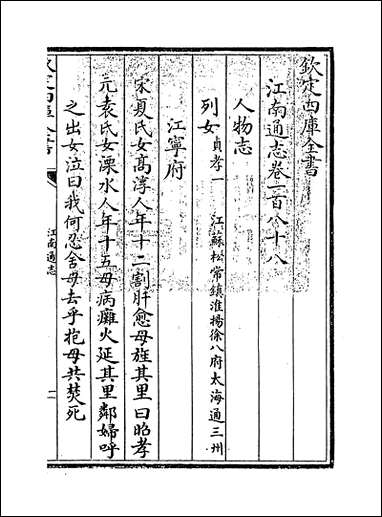 欽定四庫全書
江南通志卷一百八十八
人物志
列女貞孝一 江蘇松常鎮淮揚徐八府太海通三州
江寧府
宋夏氏女高淳人年十二割肝愈母旌其里曰昭孝
元袁氏女溧水人年十五母病癱火延其里鄰婦呼
之出女泣曰我何忍舍母去乎抱母共焚死
江南通志